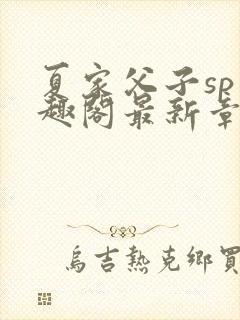 夏家父子sp
趣阁最新章
烏吉熱克鄉買